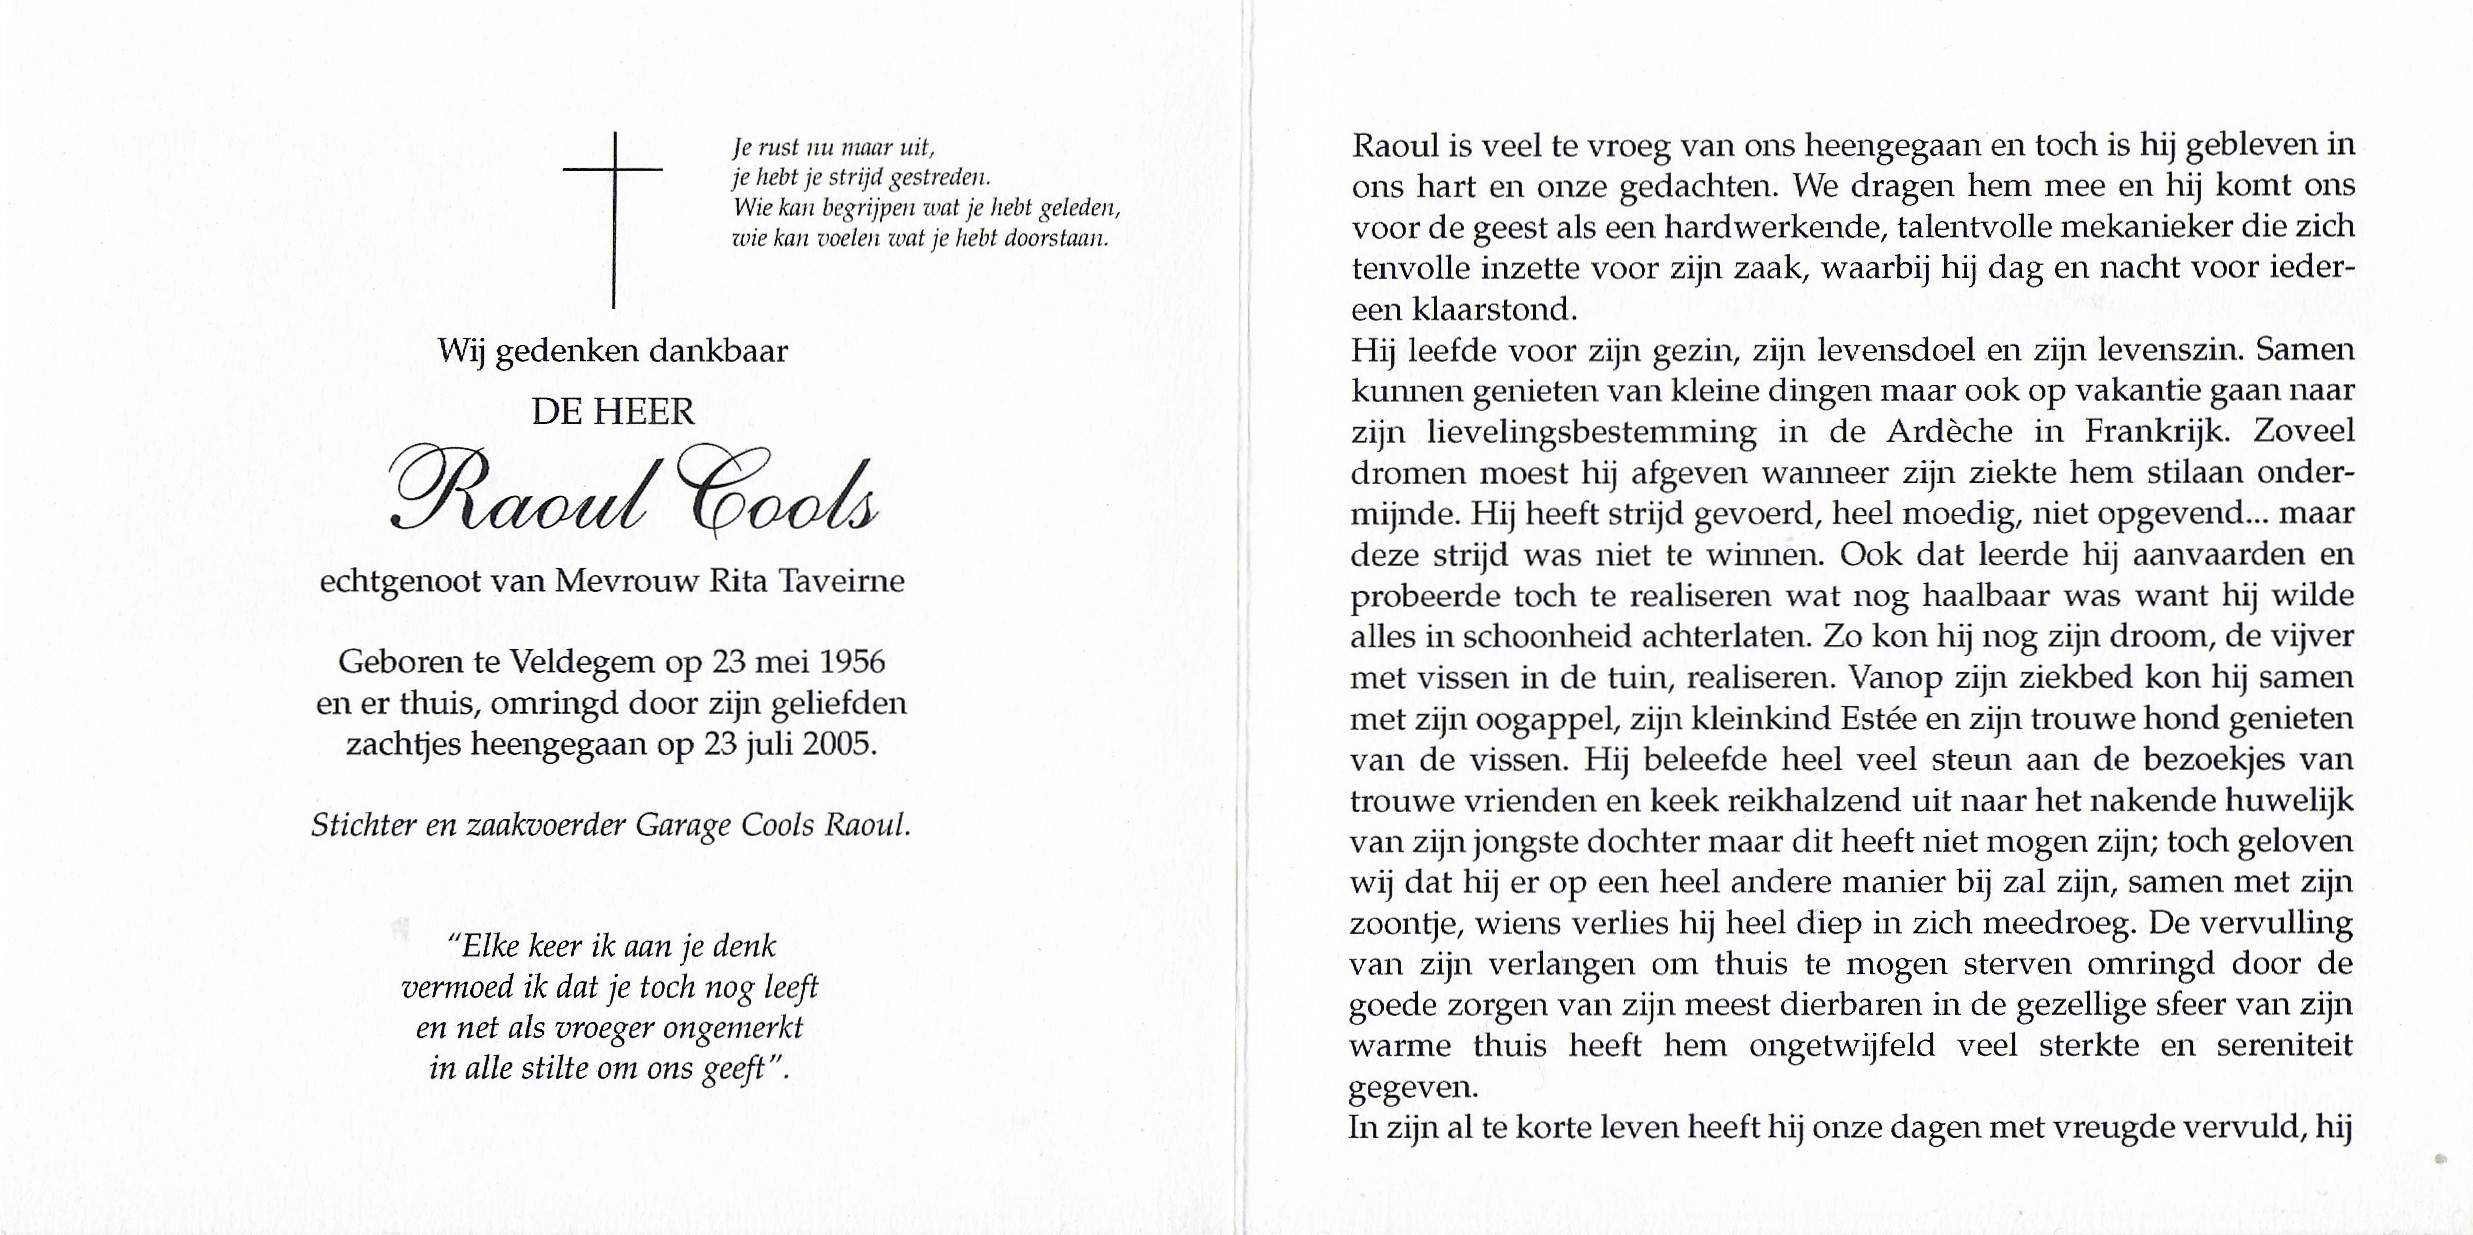 Je rust nu maar uit,
je hebt je strijd gestreden.
Wie kan begrijpen wat je hebt geleden,
wie kan voelen wat je hebt doorstaan.
Wij gedenken dankbaar
DE HEER
Raoul Cools
echtgenoot van Mevrouw Rita Taveirne
Geboren te Veldegem op 23 mei 1956
en er thuis, omringd door zijn geliefden
zachtjes heengegaan op 23 juli 2005.
Stichter en zaakvoerder Garage Cools Raoul.
“Elke keer ik aan je denk
vermoed ik dat je toch nog leeft
en net als vroeger ongemerkt
in alle stilte om ons geeft”.
Raoul is veel te vroeg van ons heengegaan en toch is hij gebleven in
ons hart en onze gedachten. We dragen hem mee en hij komt ons
voor de geest als een hardwerkende, talentvolle mekanieker die zich
tenvolle inzette voor zijn zaak, waarbij hij dag en nacht voor ieder-
een klaarstond.
Hij leefde voor zijn gezin, zijn levensdoel en zijn levenszin. Samen
kunnen genieten van kleine dingen maar ook op vakantie gaan naar
zijn lievelingsbestemming in de Ardèche in Frankrijk. Zoveel
dromen moest hij afgeven wanneer zijn ziekte hem stilaan onder-
mijnde. Hij heeft strijd gevoerd, heel moedig, niet opgevend... maar
deze strijd was niet te winnen. Ook dat leerde hij aanvaarden en
probeerde toch te realiseren wat nog haalbaar was want hij wilde
alles in schoonheid achterlaten. Zo kon hij nog zijn droom, de vijver
met vissen in de tuin, realiseren. Vanop zijn ziekbed kon hij samen
met zijn oogappel, zijn kleinkind Estée en zijn trouwe hond genieten
van de vissen. Hij beleefde heel veel steun aan de bezoekjes van
trouwe vrienden en keek reikhalzend uit naar het nakende huwelijk
van zijn jongste dochter maar dit heeft niet mogen zijn; toch geloven
wij dat hij er op een heel andere manier bij zal zijn, samen met zijn
zoontje, wiens verlies hij heel diep in zich meedroeg. De vervulling
van zijn verlangen om thuis te mogen sterven omringd door de
goede zorgen van zijn meest dierbaren in de gezellige sfeer van zijn
warme thuis heeft hem ongetwijfeld veel sterkte en sereniteit
gegeven.
In zijn al te korte leven heeft hij onze dagen met vreugde vervuld, hij